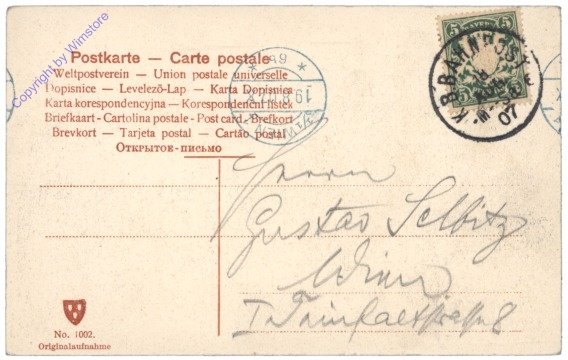 Postkarte — Carte postale
Weltpostverein — Union postale universelle
Dopisnice — Levelező-Lap — Karta Dopisnica
Karta korespondencyjna — Korespondenční lístek
Briefkaart - Cartolina postale - Post card - Brefkort
Brevkort — Tarjeta postal — Cartão postal
Открытое-письмо
5 BAYERN 5
K.B. BAHNPOST
07
Herrn
Gustav Selbitz
Wien
I
8
No. 1002.
Originalaufnahme
Copyright by Wimstore